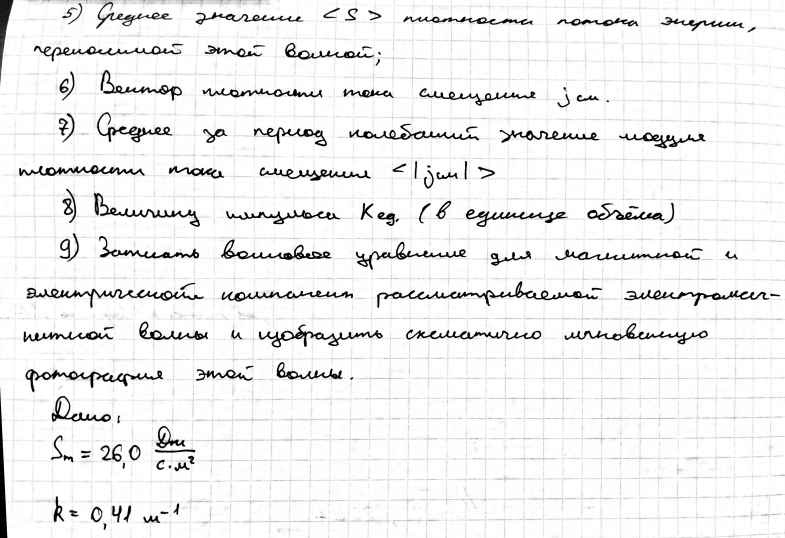 5) Среднее значение <S> плотности потока энергии,
переносимой этой волной;
6) Вектор плотности тока смещения jсм.
7) Среднее за период колебаний значение модуля
плотности тока смещения <|jсм|>
8) Величину импульса Kед. (в единице объёма)
9) Записать волновое уравнение для магнитной и
электрической компонент рассматриваемой электромаг-
нитной волны и изобразить схематично мгновенную
фотографию этой волны.
Дано:
Sm = 26,0 Дж/с·м²
k = 0,41 м⁻¹